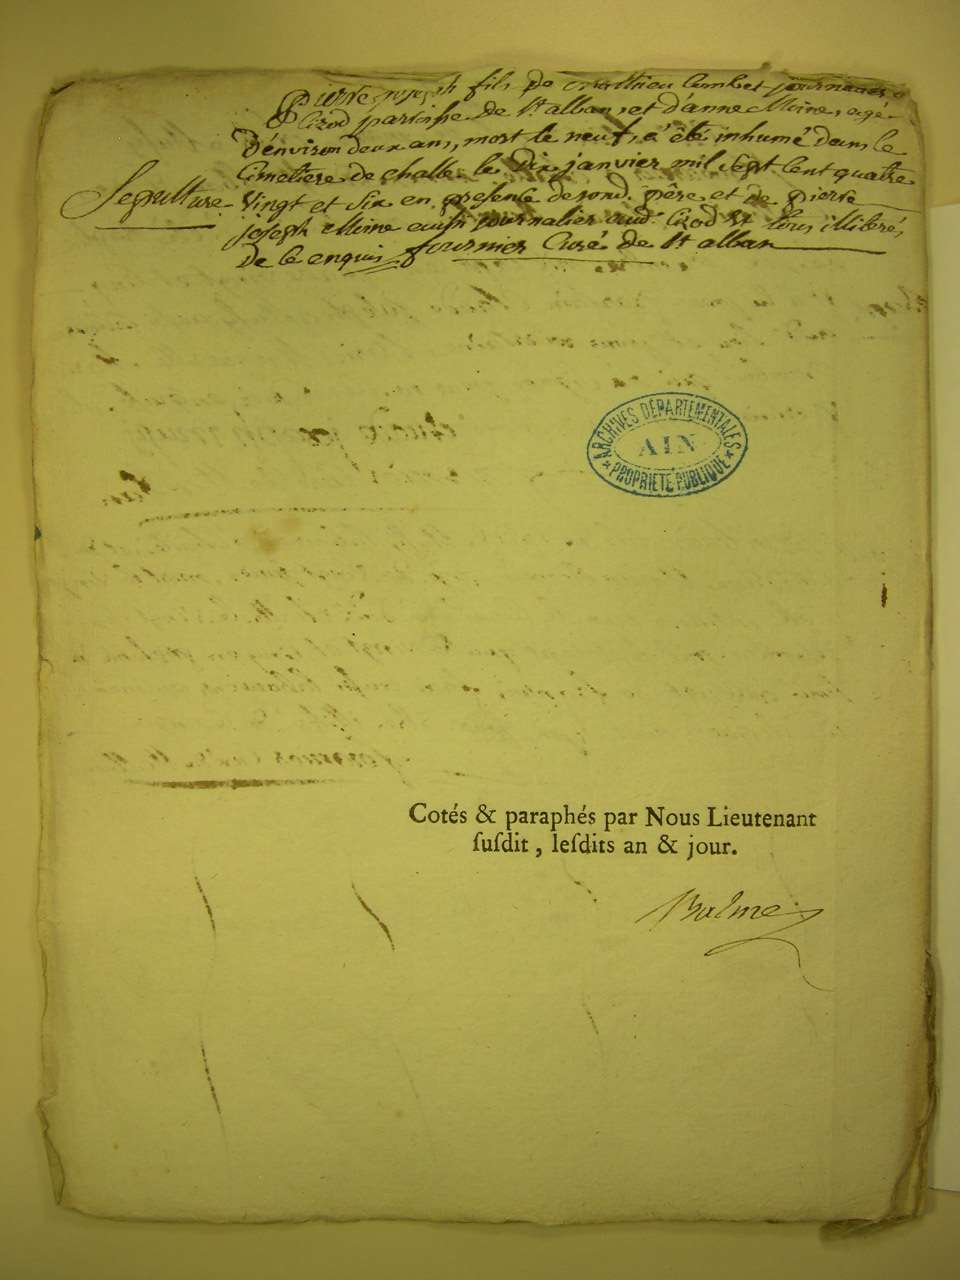 Pierre joseph fils de Mathieu Combet journalier a
Cizod paroisse de St alban, et d'anne Moine, agé
D'environ deux ans, mort le neuf, a été inhumé dans le
Cimetiere de challe le Dix janvier mil sept cent quatre
Sepulture Vingt et Six en presence de son d. père et de pierre
joseph Moine aussi journalier aud. Cizod et tous illiterés
De ce enquis fournier Curé de St alban
ARCHIVES DÉPARTEMENTALES
AIN
PROPRIÉTÉ PUBLIQUE
Cotés & paraphés par Nous Lieutenant
ſuſdit, leſdits an & jour.
Balme